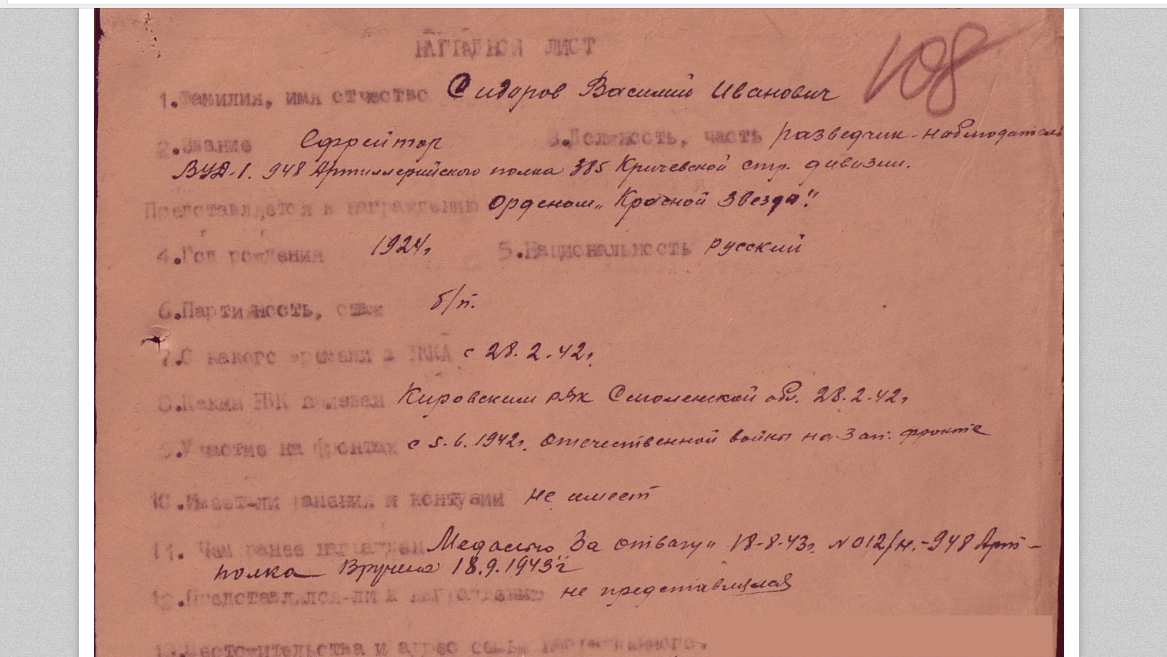 НАГРАДНОЙ ЛИСТ
108
1.Фамилия, имя отчество Сидоров Василий Иванович
2.Звание Ефрейтор 3.Должность, часть разведчик-наблюдатель
ВУД-1. 948 Артиллерийского полка 385 Кричевской стр. дивизии.
Представляется к награждению Орденом „Красной Звезда"
4.Год рождения 1924г. 5.Национальность русский
6.Партийность, стаж б/п.
7.С какого времени в РККА с 28.2.42г.
8.Каким РВК призван Кировским рвк Смоленской обл. 28.2.42г.
9.Участие на фронтах с 5.6.1942г. Отечественной войны на Зап. фронте
10.Имеет-ли ранения и контузии не имеет
11. Чем ранее награжден Медалью „За отвагу" 18-8-43г. №012/н.-948 Арт-
полка Вручена 18.9.1943г
12.Представлялся-ли к награждению не представлялся
13. и адрес семьи награжденного.